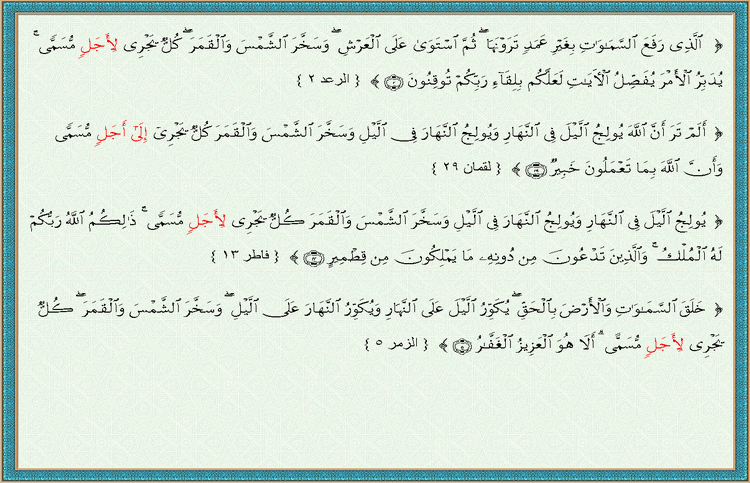 ﴿ ٱلَّذِى رَفَعَ ٱلسَّمَـٰوَٰتِ بِغَيْرِ عَمَدٍ تَرَوْنَهَا ۖ ثُمَّ ٱسْتَوَىٰ عَلَى ٱلْعَرْشِ ۖ وَسَخَّرَ ٱلشَّمْسَ وَٱلْقَمَرَ ۖ كُلٌّ يَجْرِى لِأَجَلٍ مُّسَمًّى ۚ
يُدَبِّرُ ٱلْأَمْرَ يُفَصِّلُ ٱلْـَٔايَـٰتِ لَعَلَّكُم بِلِقَآءِ رَبِّكُمْ تُوقِنُونَ ۝٢ ﴾ { الرعد ٢ }
﴿ أَلَمْ تَرَ أَنَّ ٱللَّهَ يُولِجُ ٱلَّيْلَ فِى ٱلنَّهَارِ وَيُولِجُ ٱلنَّهَارَ فِى ٱلَّيْلِ وَسَخَّرَ ٱلشَّمْسَ وَٱلْقَمَرَ كُلٌّ يَجْرِىٓ إِلَىٰٓ أَجَلٍ مُّسَمًّى
وَأَنَّ ٱللَّهَ بِمَا تَعْمَلُونَ خَبِيرٌ ۝٢٩ ﴾ { لقمان ٢٩ }
﴿ يُولِجُ ٱلَّيْلَ فِى ٱلنَّهَارِ وَيُولِجُ ٱلنَّهَارَ فِى ٱلَّيْلِ وَسَخَّرَ ٱلشَّمْسَ وَٱلْقَمَرَ كُلٌّ يَجْرِى لِأَجَلٍ مُّسَمًّى ۚ ذَٰلِكُمُ ٱللَّهُ رَبُّكُمْ
لَهُ ٱلْمُلْكُ ۚ وَٱلَّذِينَ تَدْعُونَ مِن دُونِهِۦ مَا يَمْلِكُونَ مِن قِطْمِيرٍ ۝١٣ ﴾ { فاطر ١٣ }
﴿ خَلَقَ ٱلسَّمَـٰوَٰتِ وَٱلْأَرْضَ بِٱلْحَقِّ ۖ يُكَوِّرُ ٱلَّيْلَ عَلَى ٱلنَّهَارِ وَيُكَوِّرُ ٱلنَّهَارَ عَلَى ٱلَّيْلِ ۖ وَسَخَّرَ ٱلشَّمْسَ وَٱلْقَمَرَ ۖ كُلٌّ
يَجْرِى لِأَجَلٍ مُّسَمًّى ۗ أَلَا هُوَ ٱلْعَزِيزُ ٱلْغَفَّـٰرُ ۝٥ ﴾ { الزمر ٥ }